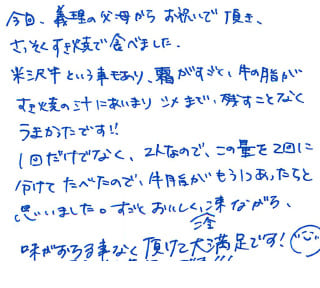 今回、義理の父母からお祝いで頂き、
さっそくすき焼で食べました.
米沢牛という事もあり、霜がすごく、牛の脂が
すき焼の汁にあいまり シメまで、残すことなく
うまかったです!!
1回だけでなく、2人なので、この量を2回に
分けてたべたので、牛脂がもう1つあったらと
思いました。すごくおいしく、凍ながら、
味がおちる事なく頂けて大満足です!